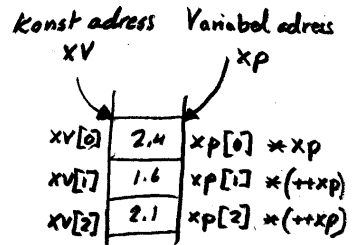 Konst adress Variabel adress
xv xp
xv[0] 2.4 xp[0] *xp
xv[1] 1.6 xp[1] *(++xp)
xv[2] 2.1 xp[2] *(++xp)